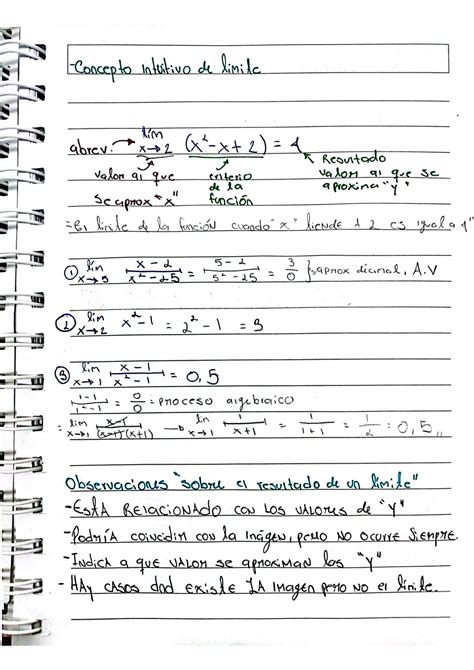 -Concepto Intuitivo de límite
abrev. → lim x→2 (x²-x+2) = 4
valor al que se aprox "x"
criterio de la función
Resultado valor al que se aproxima "y"
=El límite de la función cuando "x" tiende a 2 es igual a 4"
① lim x→5 x-2/x²-25 = 5-2/5²-25 = 3/0 } aprox decimal, A.V
② lim x→2 x²-1 = 2²-1 = 3
③ lim x→1 x-1/x²-1 = 0,5
1-1/1²-1 = 0/0 = proceso algebraico
= lim x→1 x-1/(x-1)(x+1) → lim x→1 1/x+1 = 1/1+1 = 1/2 = 0,5,,
Observaciones "sobre el resultado de un límite"
-Está RELACIONADO con los valores de "y"
-Podría coincidir con la imágen, pero no ocurre siempre.
-Indica a que valor se aproximan las "y"
- Hay casos dnd existe LA imagen pero no el límite.